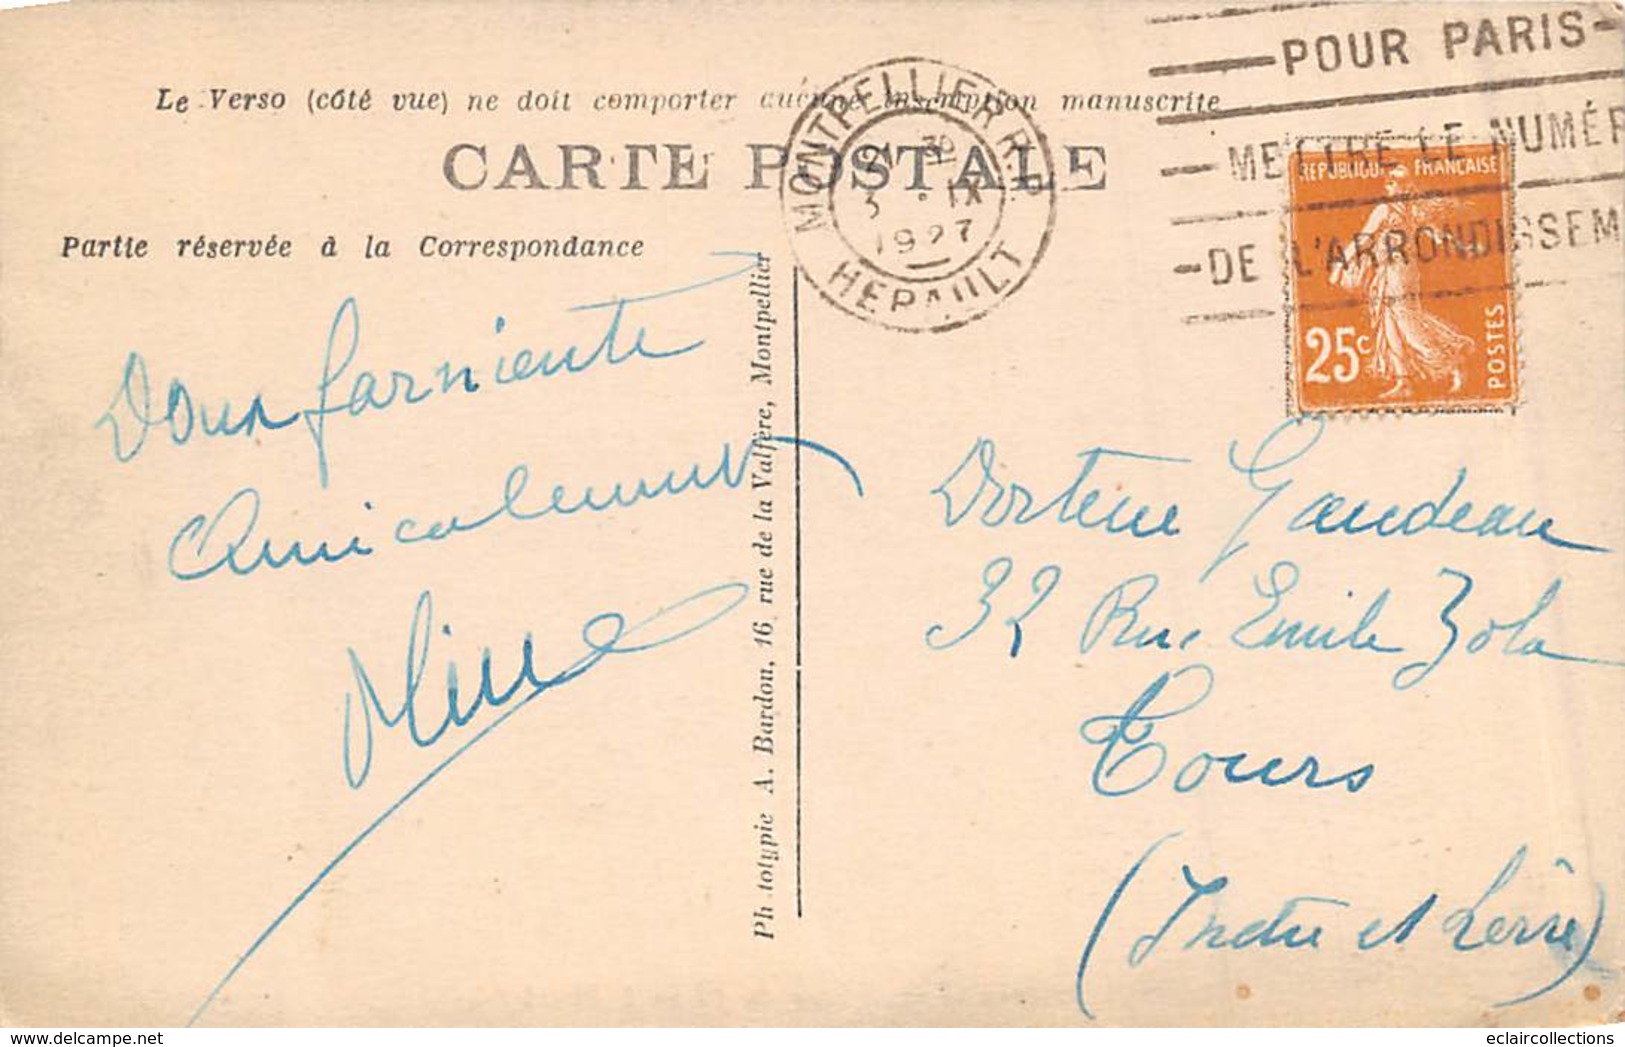 Le Verso (côté vue) ne doit comporter aucune inscription manuscrite
CARTE POSTALE
Partie réservée à la Correspondance
MONTPELLIER R.P.
21 30
3 · IX
1927
HERAULT
—POUR PARIS—
—METTRE LE NUMÉR
—DE L'ARRONDISSEM
REPUBLIQUE FRANÇAISE
25c
POSTES
Doux farniente
Amicalement
Docteur Gaudeau
32 Rue Emile Zola
Tours
(Indre et Loire)
Phototypie A. Bardon, 16, rue de la Valfère, Montpellier
eclaircollections